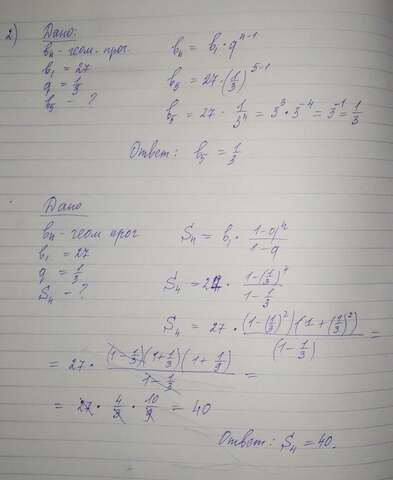 2) Дано:
bₙ - геом. прог.
b₁ = 27
q = 1/3
b₅ - ?
bₙ = b₁ · qⁿ⁻¹
b₅ = 27 · (1/3)⁵⁻¹
b₅ = 27 · 1/3⁴ = 3³ · 3⁻⁴ = 3⁻¹ = 1/3
Ответ: b₅ = 1/3
Дано
bₙ - геом прог
b₁ = 27
q = 1/3
S₄ - ?
Sₙ = b₁ · (1-qⁿ)/(1-q)
S₄ = 27 · (1-(1/3)⁴)/(1-1/3)
S₄ = 27 · (1-(1/3)²)(1+(1/3)²)/(1-1/3) =
= 27 · (1-1/3)(1+1/3)(1+1/9)/(1-1/3) =
= 27 · 4/3 · 10/9 = 40
Ответ: S₄ = 40.